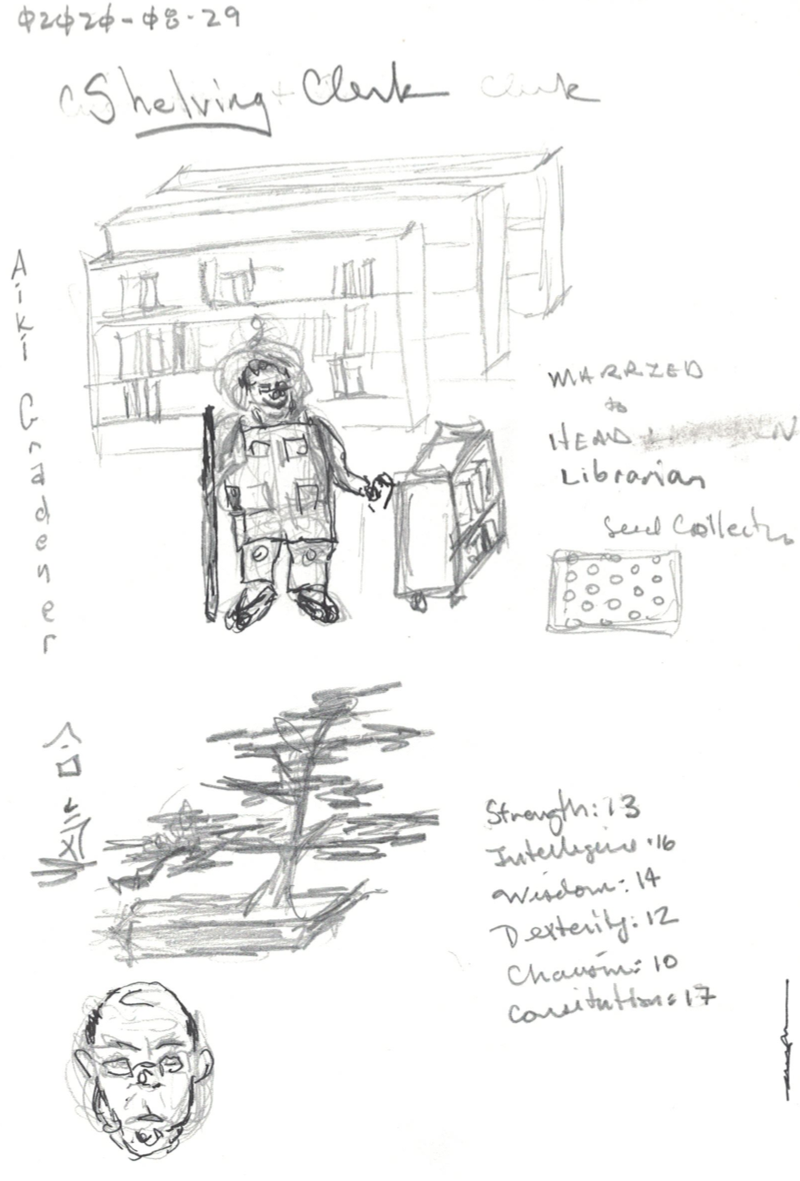 02020-08-29
Shelving Clerk Clerk
Aiki Gradener
MARRIED
to
HEAD
Librarian
Seed Collector
合气
Strength: 13
Intelligence: 16
Wisdom: 14
Dexterity: 12
Charisma: 10
Consitution: 17